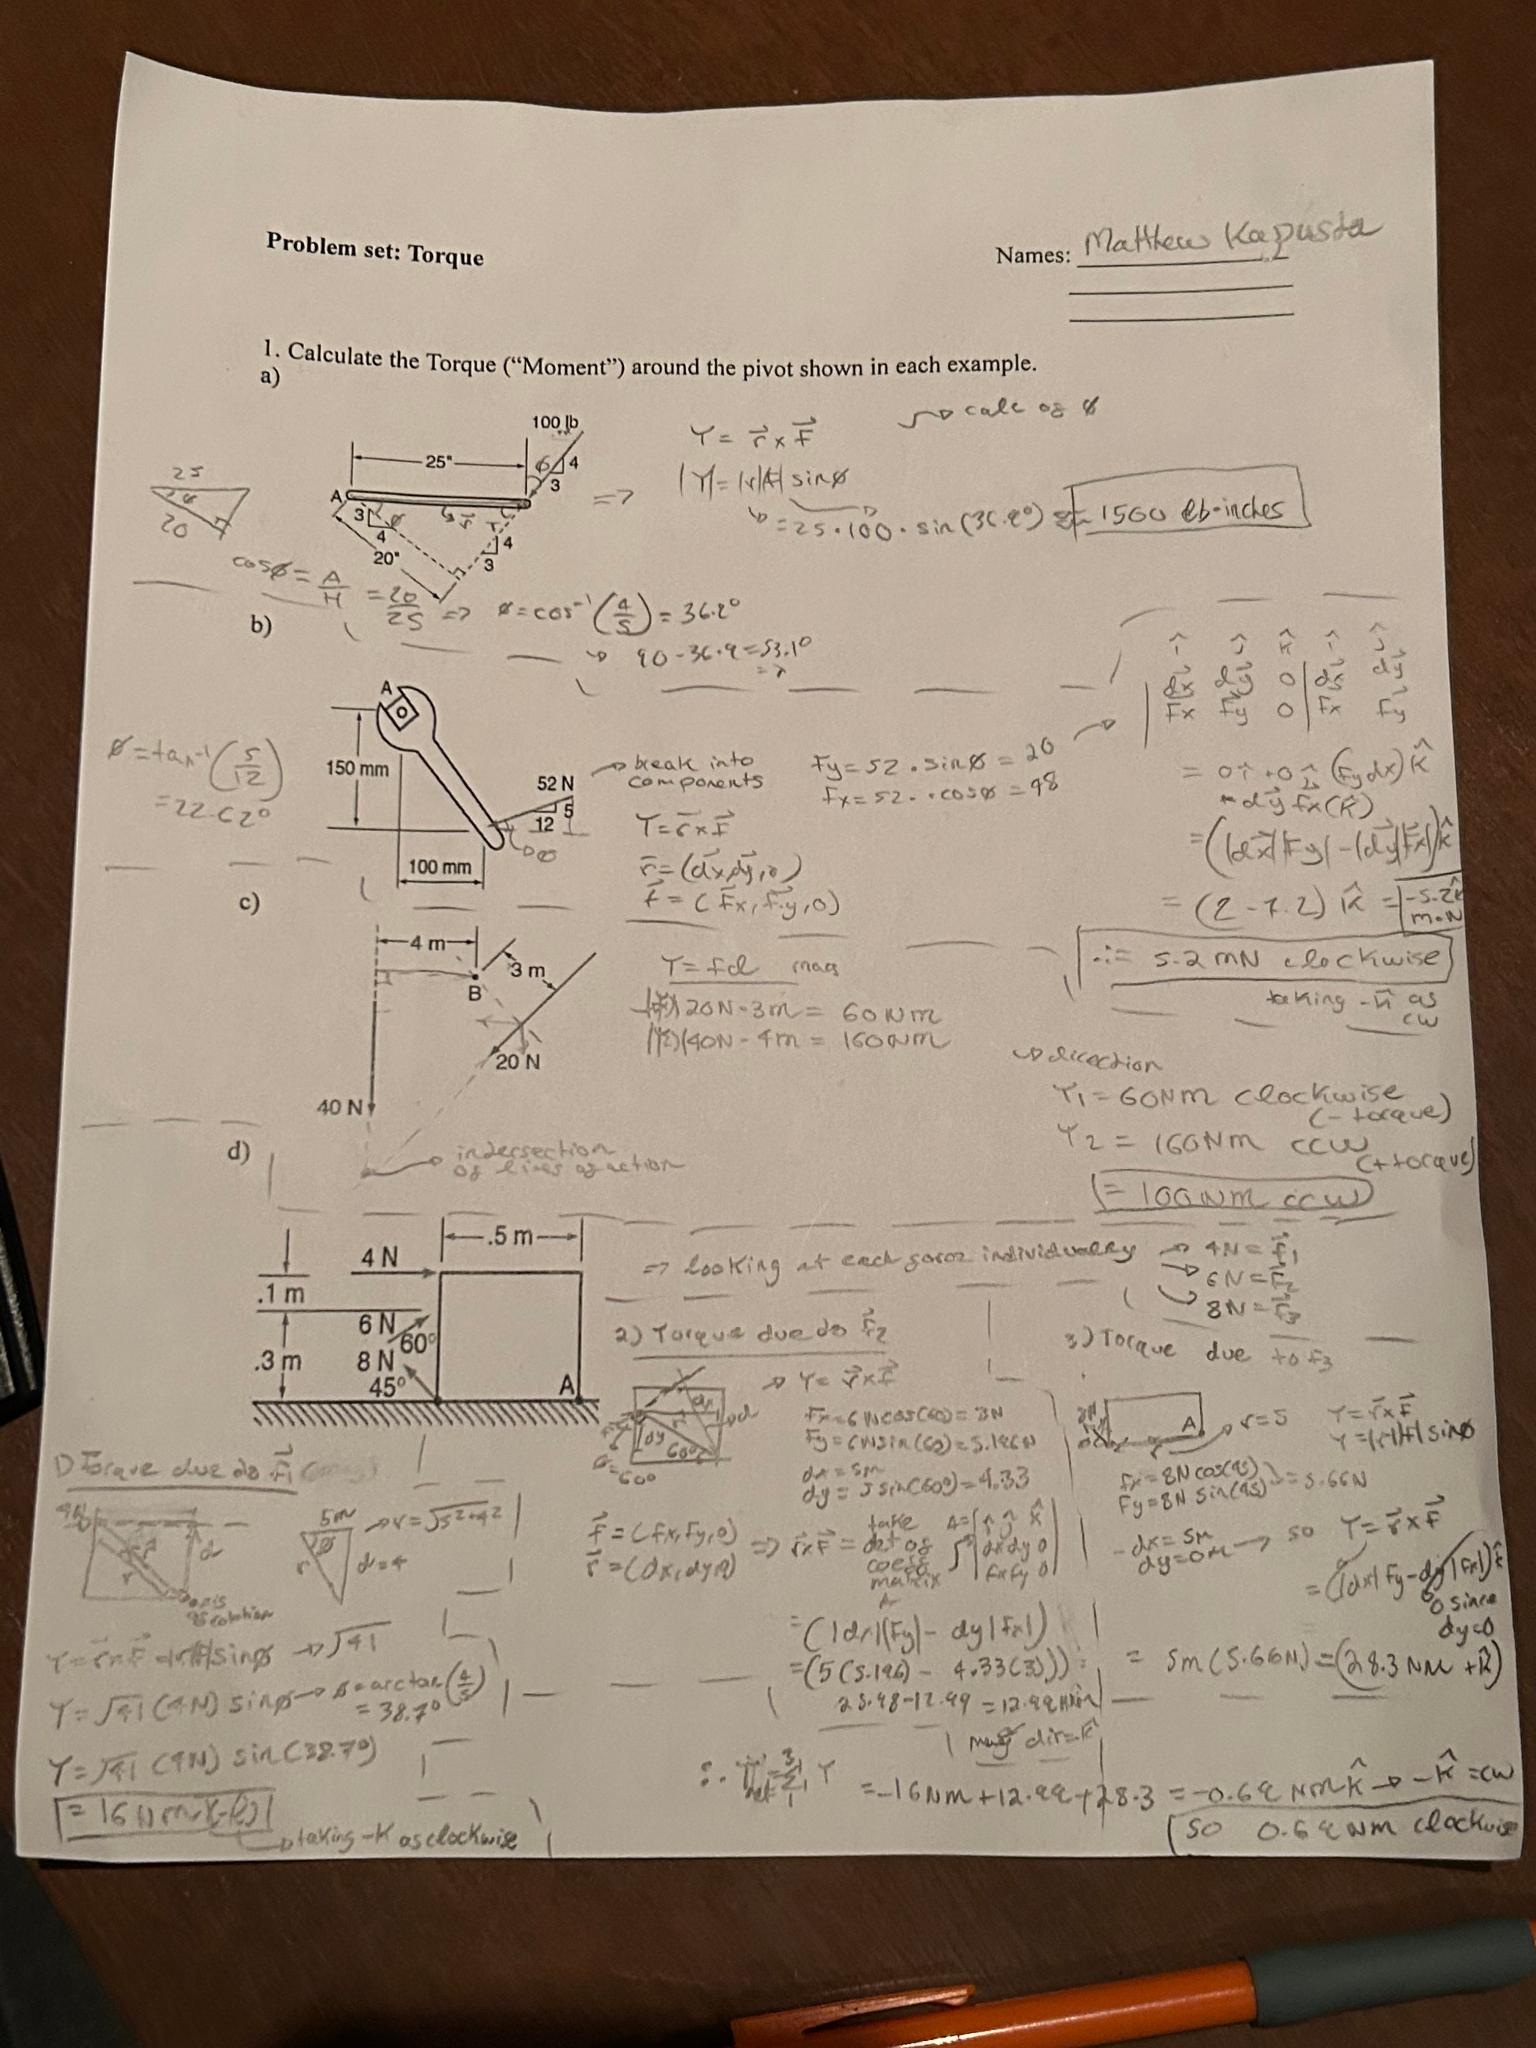 Problem set: Torque
Names: Matthew Kapusta
1. Calculate the Torque ("Moment") around the pivot shown in each example.
a)
100 lb
25"
4
3
A
3
4
20"
4
3
25
20
cosø = A/H = 20/25 => ø = cos⁻¹(4/5) = 36.9°
90 - 36.9 = 53.1°
calc of ø
=> Υ = r⃗ × F⃗
|Υ| = |r||F| sinø
= 25 · 100 · sin(36.9°) ≈ 1500 lb·inches
b)
A
150 mm
52 N
5
12
100 mm
ø = tan⁻¹(5/12)
= 22.62°
break into
components
Fy = 52 · sinø = 20
Fx = 52 · cosø = 48
Υ = r⃗ × F⃗
r⃗ = (dx, dy, 0)
F⃗ = (Fx, Fy, 0)
î ĵ k̂ î ĵ
dx dy 0 dx dy
Fx Fy 0 Fx Fy
= 0î + 0ĵ (Fydx) k̂
- dy Fx(k̂)
= (|dx||Fy| - |dy||Fx|) k̂
= (2 - 7.2) k̂ = -5.2k̂
m·N
∴ = 5.2 mN clockwise
taking -k̂ as
cw
c)
4 m
B
3 m
20 N
40 N
Υ = fd mag
20N · 3m = 60Nm
40N · 4m = 160Nm
direction
Υ1 = 60Nm clockwise
(- torque)
Υ2 = 160Nm ccw
(+ torque)
= 100Nm ccw
intersection
of lines of action
d)
.5 m
4 N
.1 m
6 N
60°
8 N
.3 m
45°
A
=> looking at each force individually
4N = F⃗1
6N = F⃗2
8N = F⃗3
1) Torque due to F⃗1
5m
r = √5²+4²
d = 4
axis
of rotation
Υ = r⃗ × F⃗ = |r||F| sinø → √41
Υ = √41 (4N) sinø → ø = arctan(4/5)
= 38.7°
Υ = √41 (4N) sin(38.7°)
= 16Nm(-k̂)
taking -K as clockwise
2) Torque due to F⃗2
Υ = r⃗ × F⃗
Fx = 6Ncos(60) = 3N
Fy = 6Nsin(60) = 5.196N
dx = 5m
dy = 5sin(60°) = 4.33
dy
60°
θ = 60°
F⃗ = (Fx, Fy, 0)
r⃗ = (dx, dy, 0)
=> r⃗ × F⃗ = take
det of
coeff
matrix
î ĵ k̂
dx dy 0
Fx Fy 0
= (|dx||Fy| - dy|Fx|)
= (5(5.196) - 4.33(3))
25.98 - 12.99 = 12.99
mag dir = k̂
3) Torque due to F3
A
r = 5
Υ = r⃗ × F⃗
Υ = |r||F| sinø
Fx = 8N cos(45)
Fy = 8N sin(45) = 5.66N
dx = 5m
dy = 0m → so Υ = r⃗ × F⃗
= (|dx|Fy - dy|Fx|) k̂
0 since
dy=0
= 5m(5.66N) = (28.3 NM +k̂)
= -16Nm + 12.99 + 28.3 = -0.69 Nmk̂ → -k̂ = cw
so 0.69 Nm clockwise